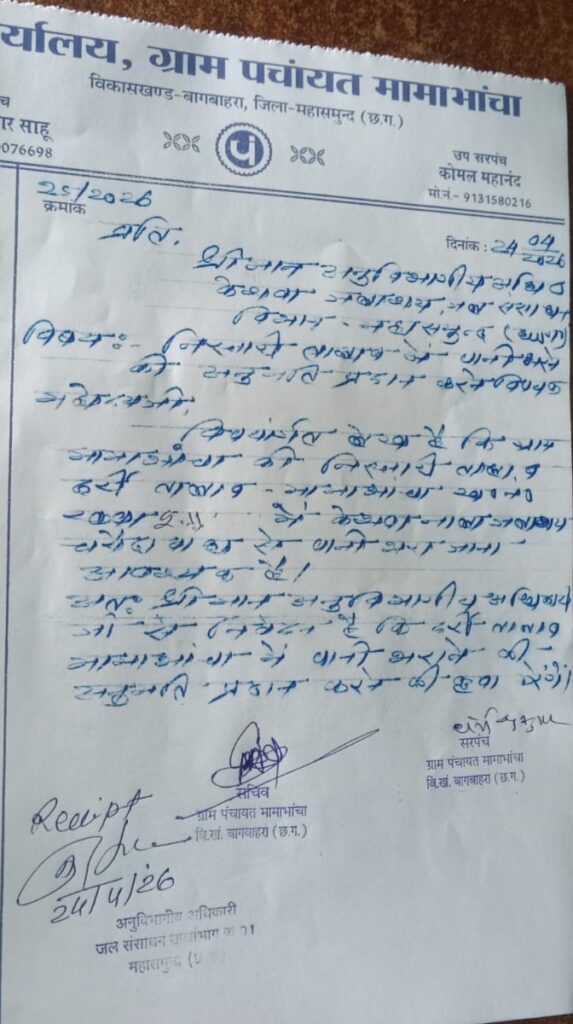 र्यालय, ग्राम पचांयत मामाभांचा
विकासखण्ड-बागबाहरा, जिला-महासमुन्द (छ.ग.)
च
ार साहू
076698
पं
उप सरपंच
कोमल महानंद
मो.नं.- 9131580216
25/2026
क्रमांक
दिनांक : 24 04/2026
प्रति,
श्रीमान अनुविभागीय अधि०
केशवा जलाशय, जल संसाधन
विभाग - महासमुन्द
विषय:- निस्तारी तालाब में पानी भरने
की अनुमति प्रदान करने विषयक
महोदयजी,
विषयांर्गत लेख है कि ग्राम
मामाभांचा की निस्तारी तालाब
दर्री तालाब - मामाभांचा ख०न०
रकबा में केशवा नाला जलाशय
से पानी भरा जाना
आवश्यक है।
अतः श्रीमान अनुविभागीय अधिकारी
जी से निवेदन है कि दर्री तालाब
मामाभांचा में पानी भराने की
अनुमति प्रदान करने की कृपा करेंगे।
सरपंच
ग्राम पंचायत मामाभांचा
वि.खं. बागबाहरा (छ.ग.)
सचिव
ग्राम पंचायत मामाभांचा
वि.खं. बागबाहरा (छ.ग.)
Receipt
24/4/26
अनुविभागीय अधिकारी
जल संसाधन उपसंभाग क्र 01
महासमुन्द (छ.ग.)